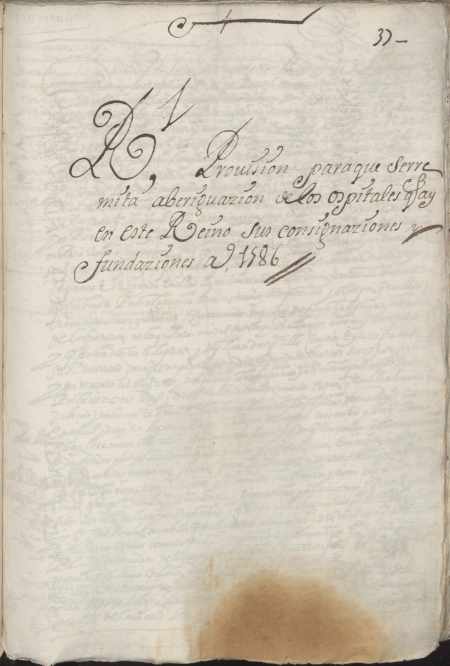 37-
Rl, Provision para que Serre
mita aberiguazion de los ospitales q hay
en este Reino sus consignaziones y
fundaziones Ao, 1586